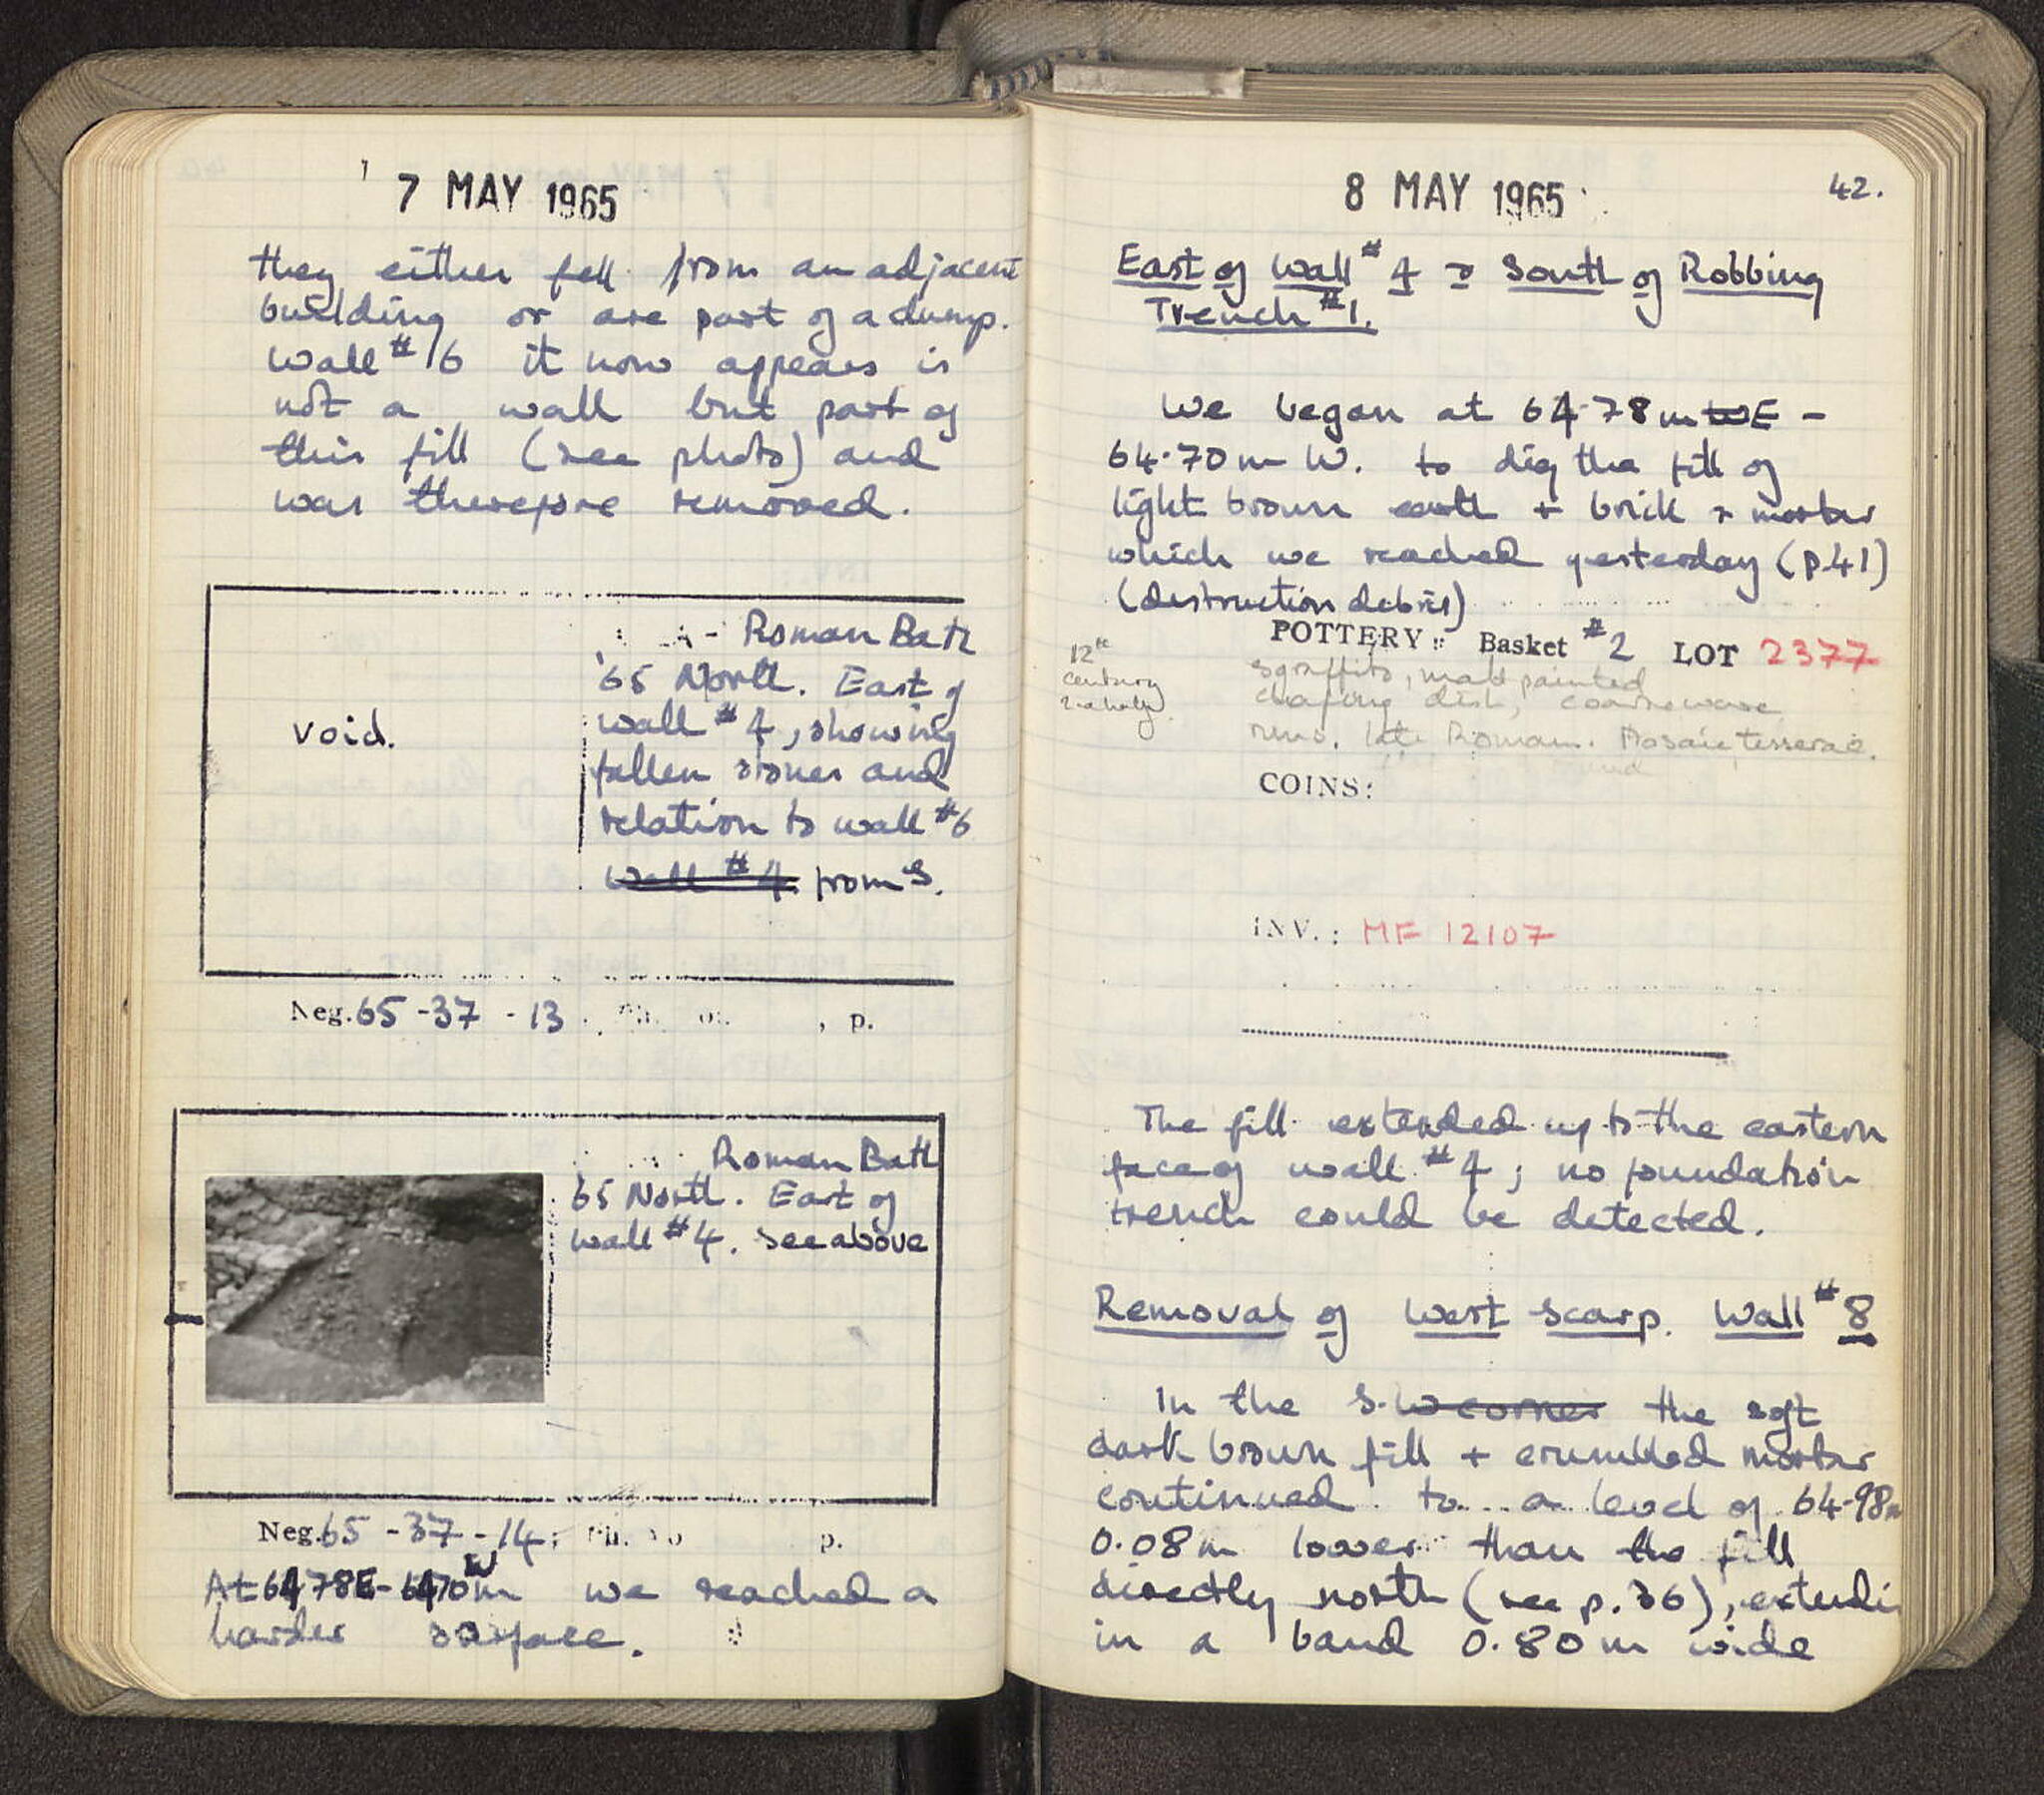 7 MAY 1965
they either fell from an adjacent
building or are part of a dump.
Wall #6 it now appears is
not a wall but part of
this fill (see photo) and
was therefore removed.
void.
Roman Bath
'65 North. East of
wall #4, showing
fallen stones and
relation to wall #6
Wall #4 from S.
Neg. 65-37-13 , p.
Roman Bath
65 North. East of
wall #4. See above
Neg. 65-37-14; p.
At 64.78E - 64.70m W we reached a
harder surface.
8 MAY 1965
42.
East of Wall #4 & South of Robbing
Trench #1.
We began at 64.78m W E -
64.70m W. to dig the fill of
light brown earth + brick + mortar
which we reached yesterday (p.41)
(destruction debris)
POTTERY: Basket #2 LOT 2377
12th
century
sgraffito, matt painted
chafing dish, coarse ware
rims. late Roman. Mosaic tesserae.
COINS:
INV.: MF 12107
The fill extended up to the eastern
face of wall #4; no foundation
trench could be detected.
Removal of West scarp. Wall #8
In the S.W corner the soft
dark brown fill + crumbled mortar
continued to a level of 64.98m
0.08m lower than the fill
directly north (see p.36), extendi
in a band 0.80m wide